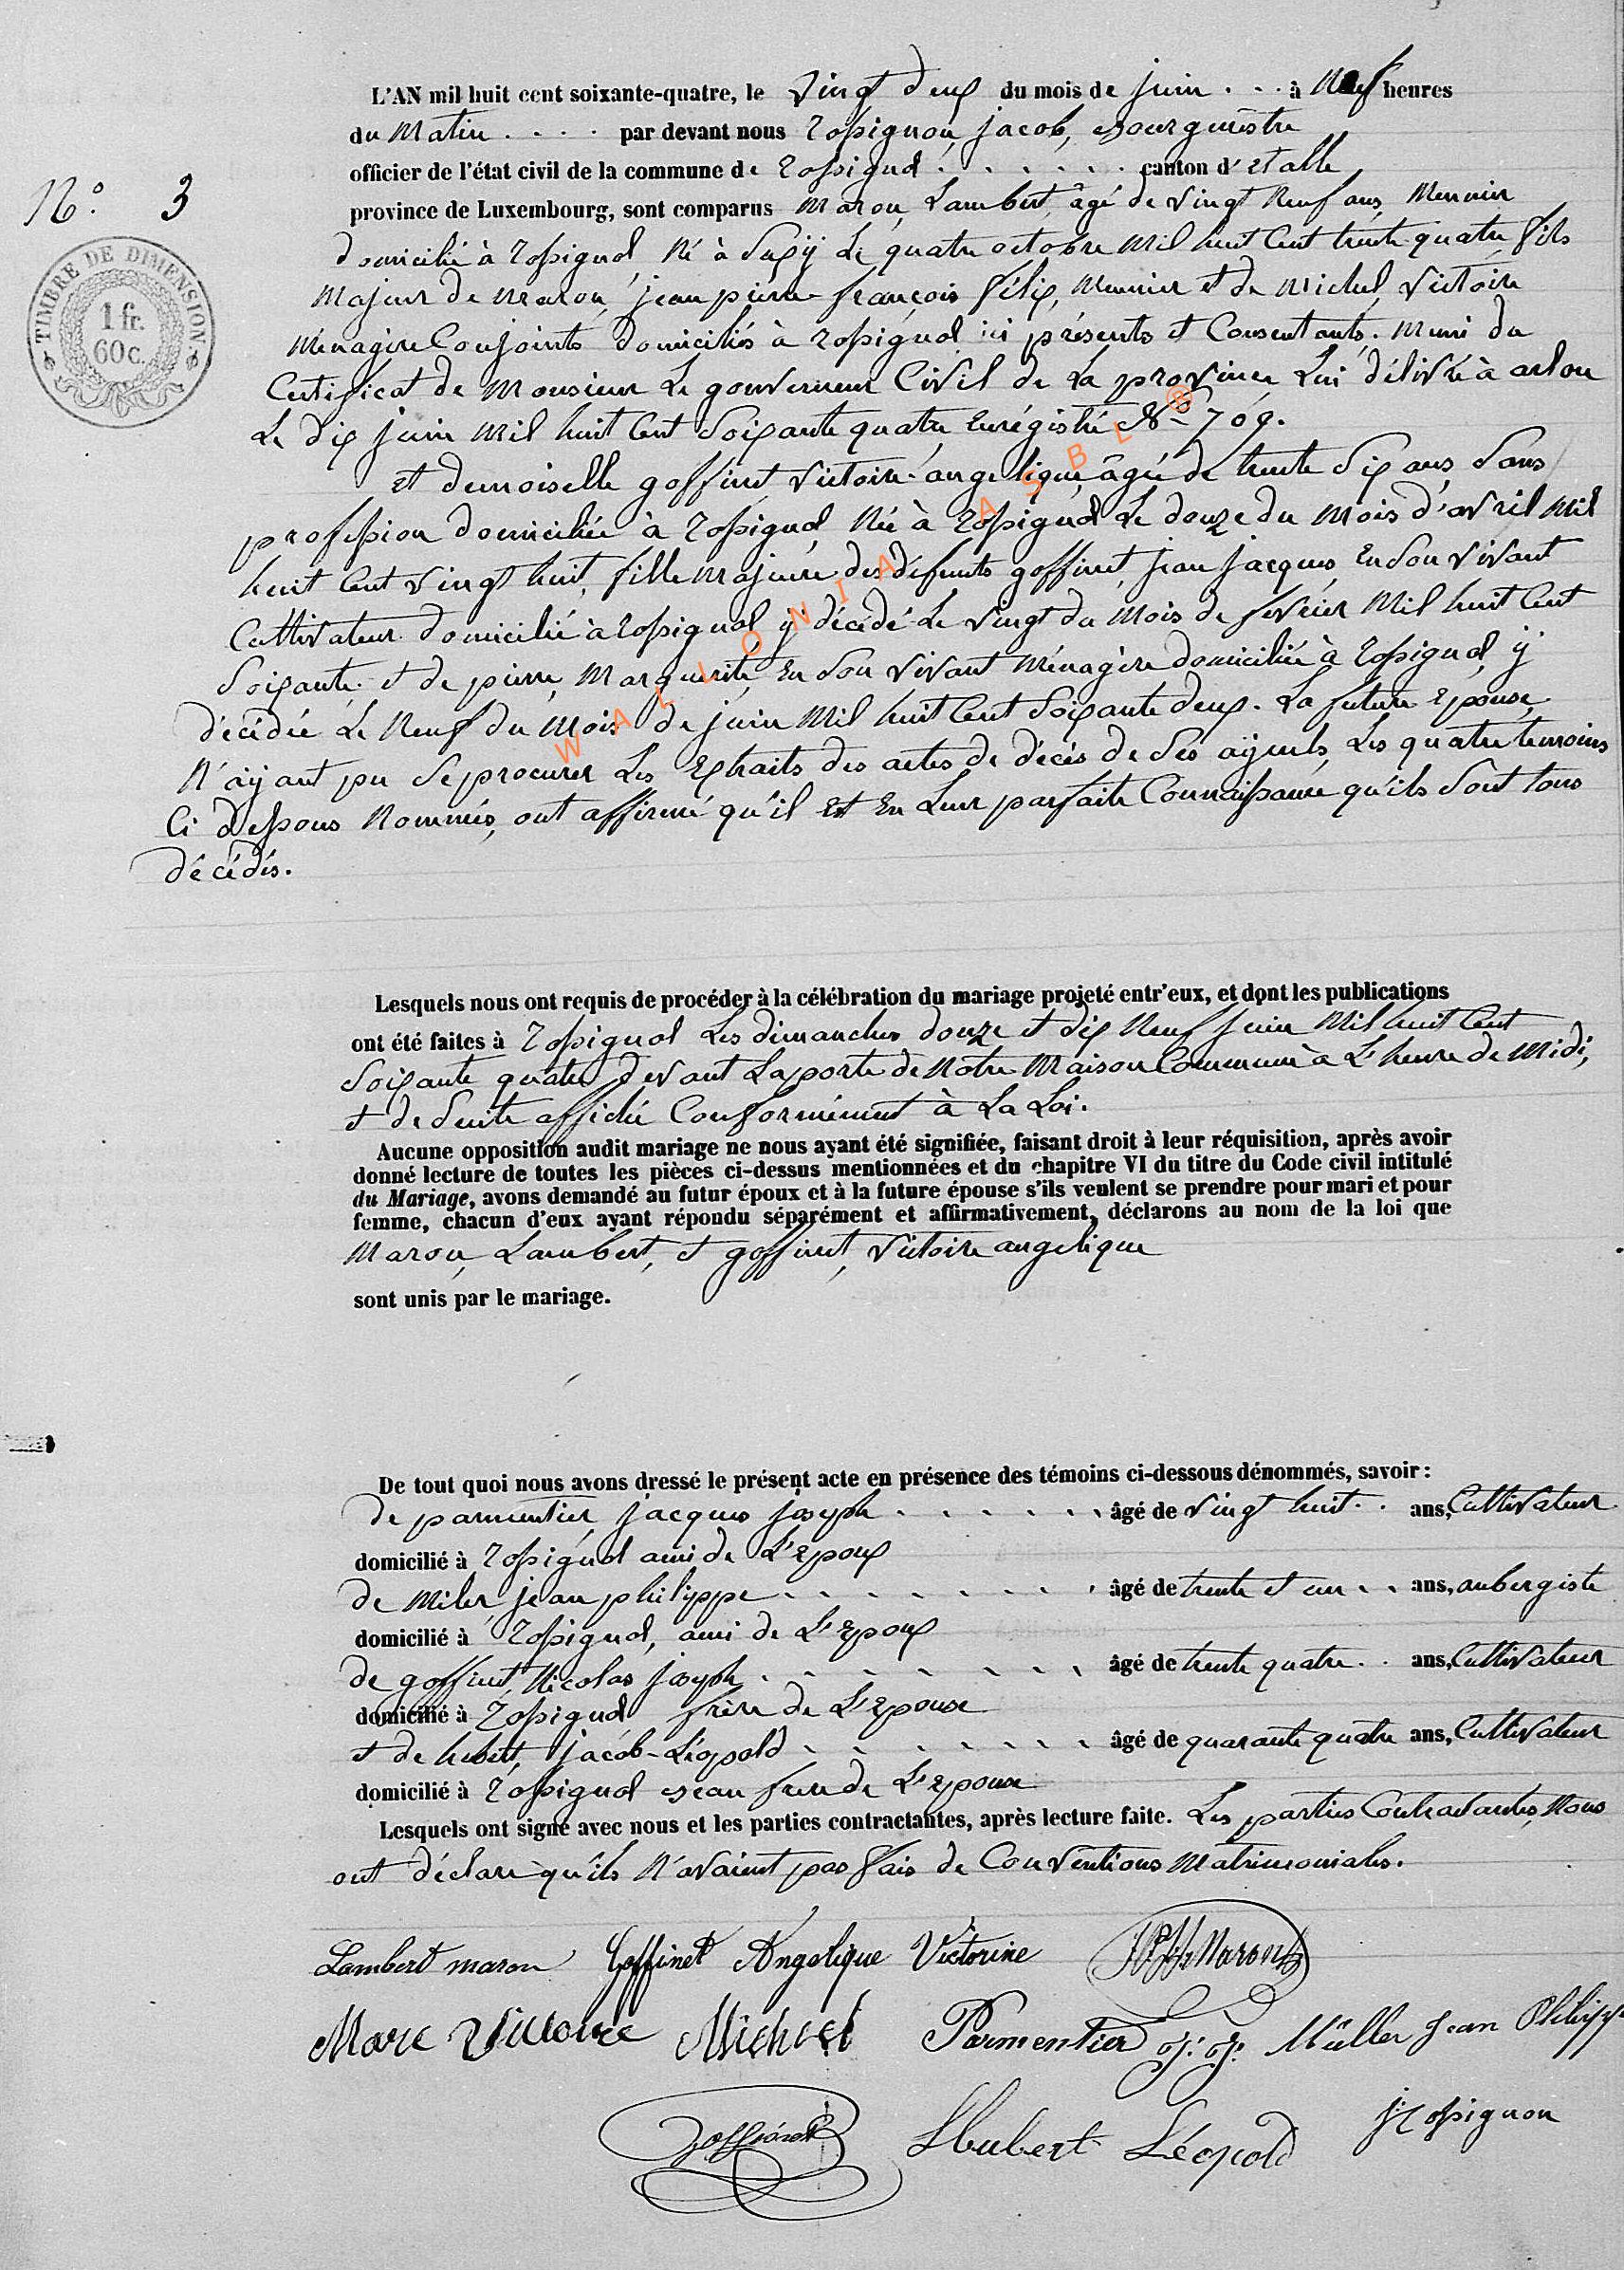 L'AN mil huit cent soixante-quatre, le vingt deux du mois de juin . . . à Neuf heures
du Matin . . . . par devant nous Rossignon, jacob, Bourgmestre
officier de l'état civil de la commune de Rossignol . . . . . . canton d' Etalle
N.° 3
province de Luxembourg, sont comparus Maron, Lambert, âgé de vingt Neuf ans, Meunier
TIMBRE DE DIMENSION
1 fr.
60 c.
domicilié à Rossignol, Né à Suxÿ Le quatre octobre Mil huit Cent trente quatre fils
Majeur de Maron, jean pierre françois félix, Meunier et de Michel, Victoire
Ménagère Conjoints domiciliés à Rossignol ici présents et Consentants. Muni du
Certificat de Monsieur Le gouverneur Civil de La province Lui délivré à arlon
Le dix juin Mil huit Cent Soixante quatre Enrégistré N° 709.
Et demoiselle goffinet Victoire angelique, âgée de trente Six ans, Sans
profession domiciliée à Rossignol, Née à Rossignol Le douze du Mois d'avril Mil
huit Cent vingt huit, fille Majeure des défunts goffinet, jean jacques, En Son vivant
Cultivateur domicilié à Rossignol, ÿ décédé Le vingt du Mois de février Mil huit Cent
Soixante et de pierre, Marguerite, En Son vivant Ménagère domiciliée à Rossignol, ÿ
décédée Le Neuf du Mois de juin Mil huit Cent Soixante deux. La future Epouse,
N'aÿant pu Se procurer Les Extraits des actes de décès de Ses aÿeuls, Les quatre temoins
Ci dessous Nommés, ont affirmé qu'il Est En Leur parfaite Connaissance qu'ils Sont tous
décédés.
WALLONIA ASBL ®
Lesquels nous ont requis de procéder à la célébration du mariage projeté entr'eux, et dont les publications
ont été faites à Rossignol Les dimanches douze et dix Neuf juin Mil huit Cent
Soixante quatre devant La porte de Notre Maison Commune à L'heure de Midi,
et de Suite affiché Conformément à La Loi.
Aucune opposition audit mariage ne nous ayant été signifiée, faisant droit à leur réquisition, après avoir
donné lecture de toutes les pièces ci-dessus mentionnées et du chapitre VI du titre du Code civil intitulé
du Mariage, avons demandé au futur époux et à la future épouse s'ils veulent se prendre pour mari et pour
femme, chacun d'eux ayant répondu séparément et affirmativement, déclarons au nom de la loi que
Maron, Lambert, et goffinet, Victoire angelique
sont unis par le mariage.
De tout quoi nous avons dressé le présent acte en présence des témoins ci-dessous dénommés, savoir :
de parmentier, jacques joseph . . . . . . âgé de vingt huit . . ans, Cultivateur
domicilié à Rossignol ami de L'Epoux
de Miler jean philippe . . . . . . . . âgé de trente et un . . ans, aubergiste
domicilié à Rossignol, ami de L'Epoux
de goffinet, Nicolas joseph . . . . . . . âgé de trente quatre . . ans, Cultivateur
domicilié à Rossignol frère de L'Epouse
et de hubert, jacob-Léopold . . . . . . . âgé de quarante quatre ans, Cultivateur
domicilié à Rossignol Beau frère de L'Epouse
Lesquels ont signé avec nous et les parties contractantes, après lecture faite. Les parties Contractantes, Nous
ont déclaré qu'ils N'avaient pas fais de Conventions Matrimoniales.
Lambert maron Goffinet Angelique Victorine Maron
Marc Victoire Michel Parmentier J. J. Müller Jean Philippe
Goffinet Hubert Léopold J. Rossignon